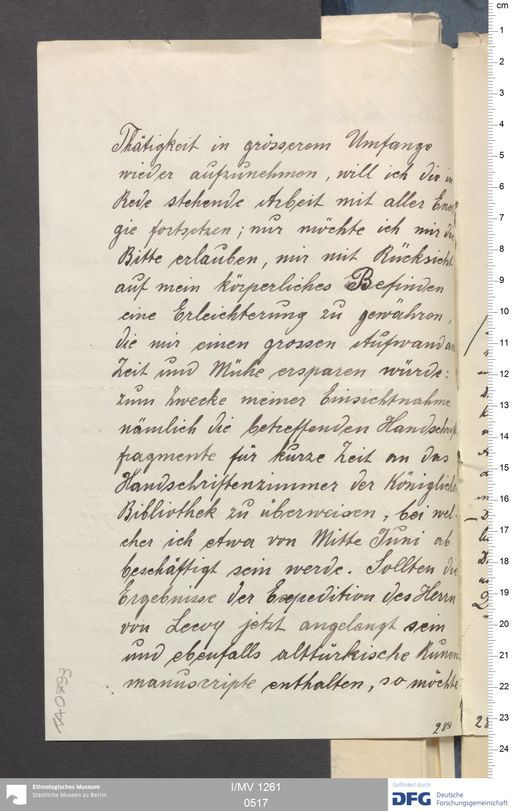 Thätigkeit in grösserem Umfange
wieder aufzunehmen, will ich die in
Rede stehende Arbeit mit aller Ener-
gie fortsetzen; nur möchte ich mir die
Bitte erlauben, mir mit Rücksicht
auf mein körperliches Befinden
eine Erleichterung zu gewähren,
die mir einen grossen Aufwand an
Zeit und Mühe ersparen würde:
zum Zwecke meiner Einsichtnahme
nämlich die betreffenden Handschrift
fragmente für kurze Zeit an das
Handschriftenzimmer der Königlichen
Bibliothek zu überweisen, bei wel-
cher ich etwa von Mitte Juni ab
beschäftigt sein werde. Sollten die
Ergebnisse der Expedition des Herrn
von Lecoq jetzt angelangt sein
und ebenfalls alttürkische Runen-
manuscripte enthalten, so möchte
TA0793
289
28
cm
1
2
3
4
5
6
7
8
9
10
11
12
13
14
15
16
17
18
19
20
21
22
23
24
Ethnologisches Museum
Staatliche Museen zu Berlin
I/MV 1261
0517
Gefördert durch
DFG Deutsche
Forschungsgemeinschaft